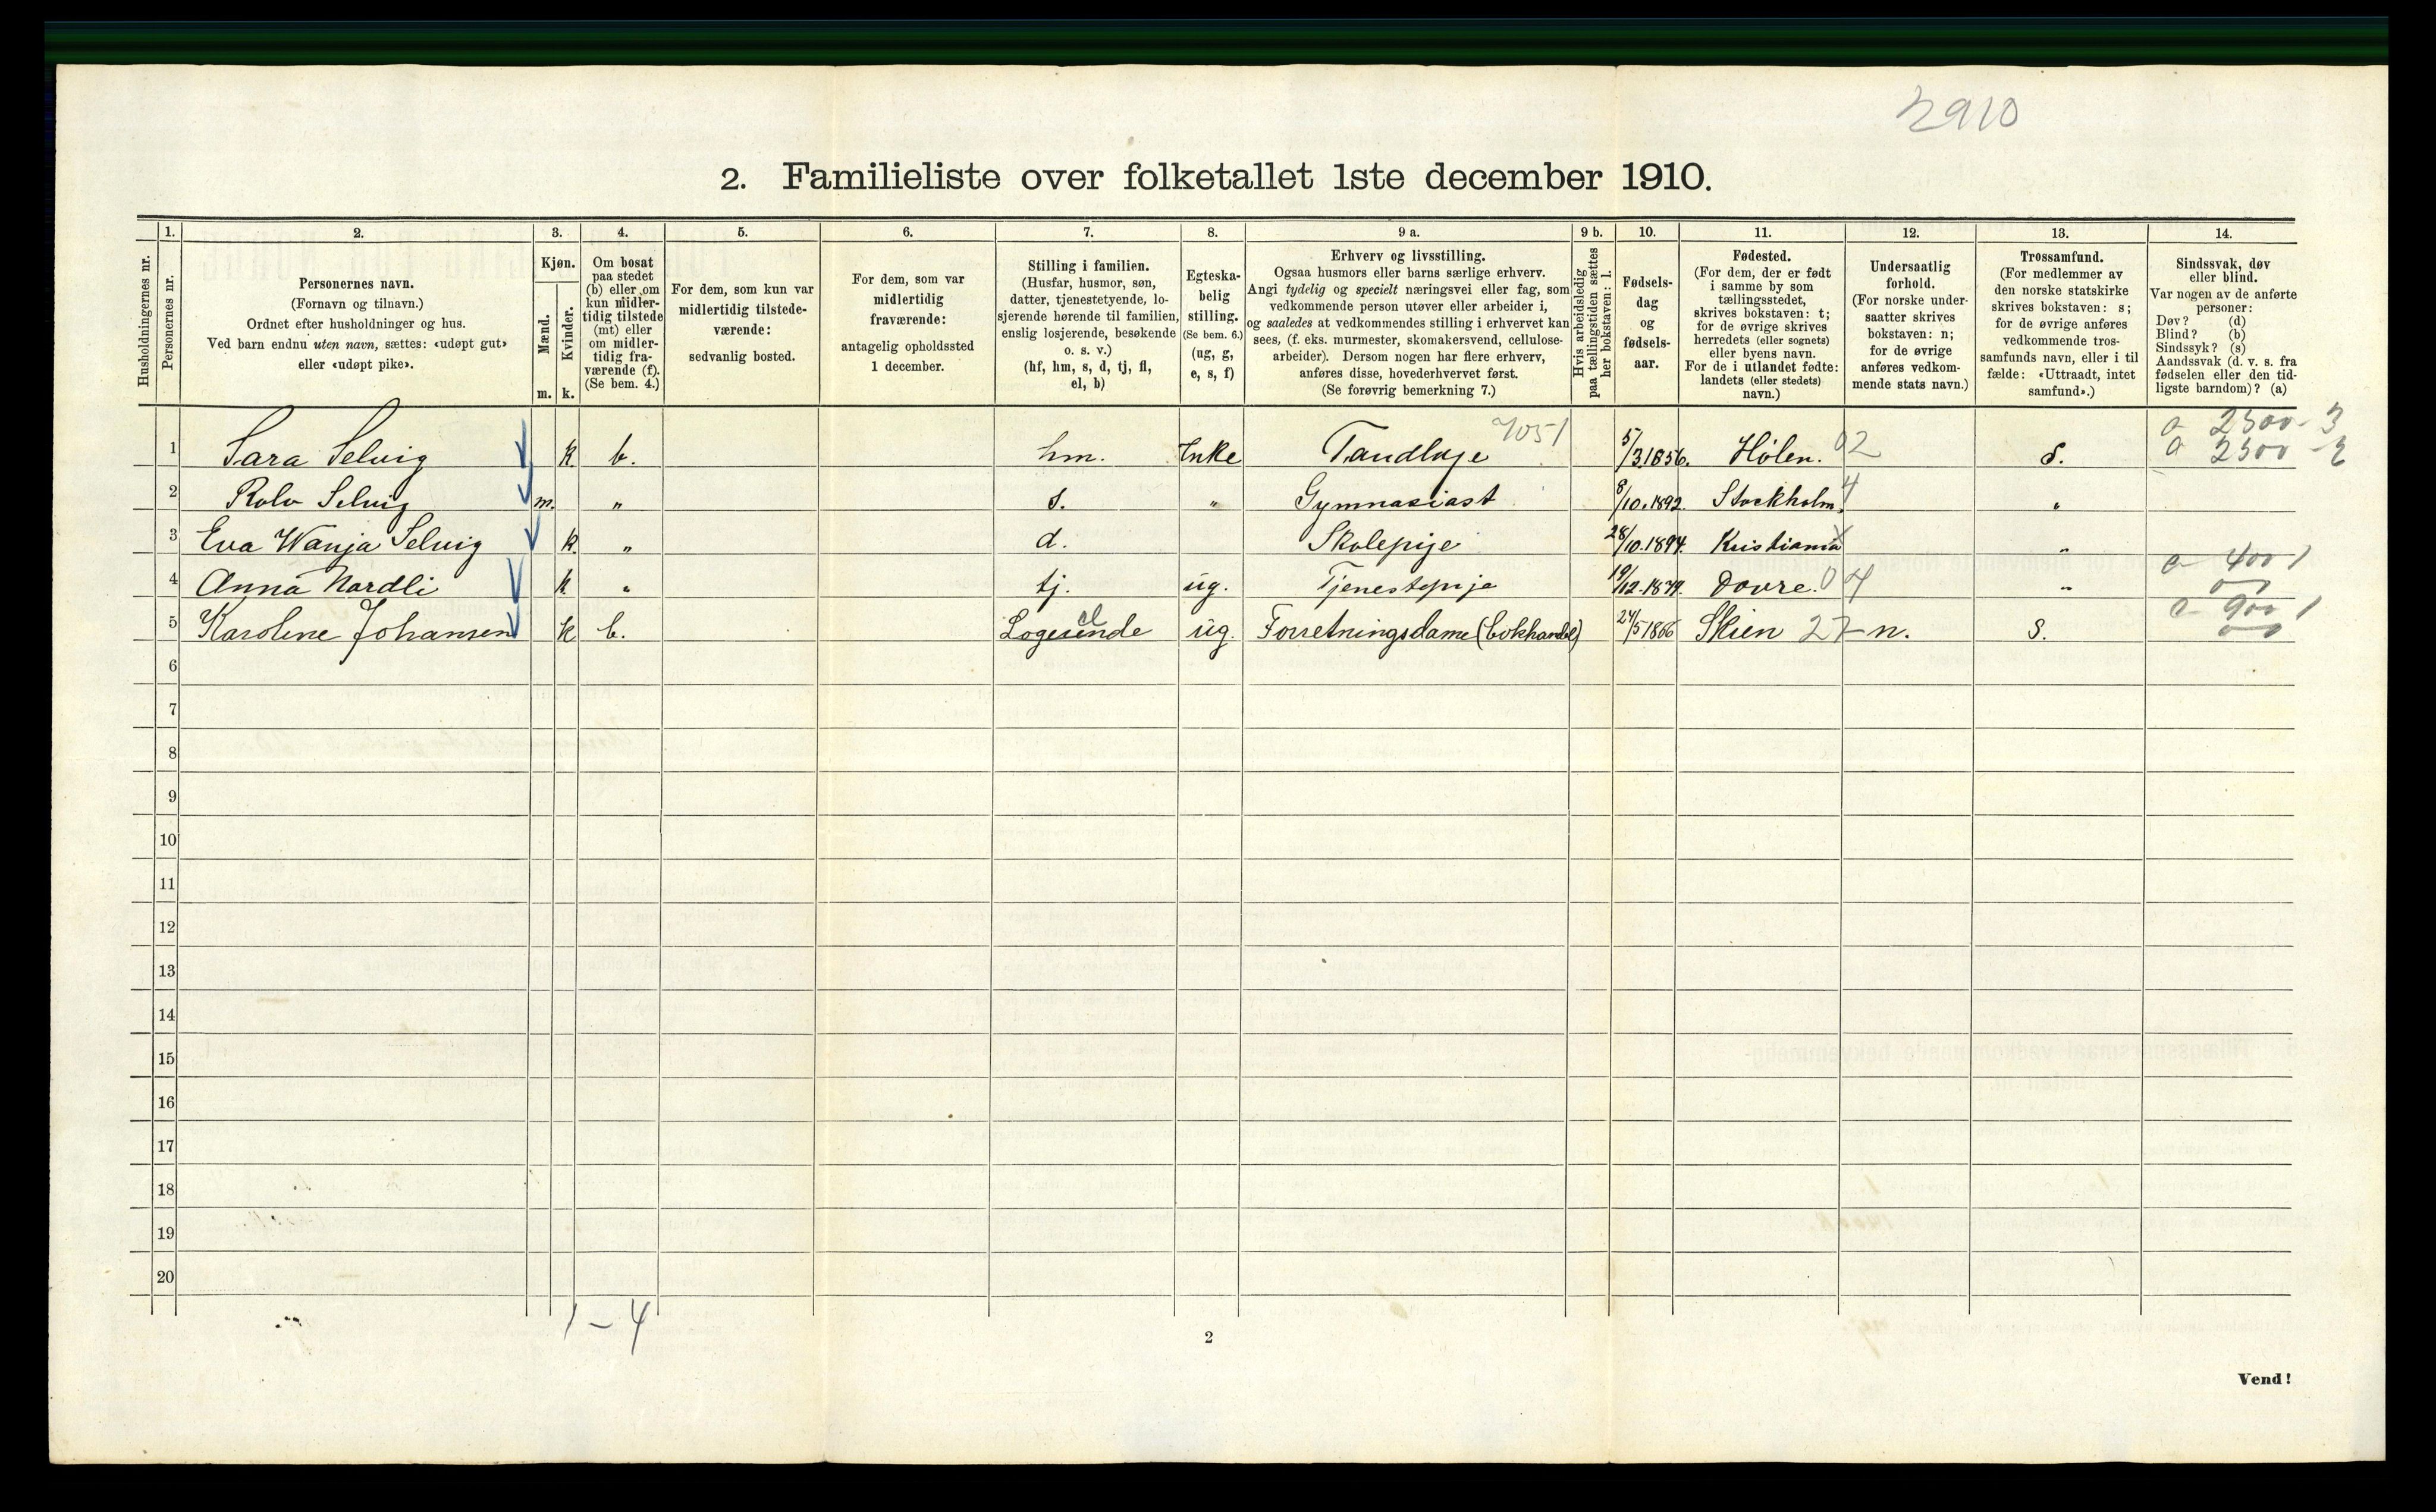 2910
2. Familieliste over folketallet 1ste december 1910.
1. 2. 3. 4. 5. 6. 7. 8. 9 a. 9 b. 10. 11. 12. 13. 14.
Husholdningernes nr.
Personernes nr.
Personernes navn.
(Fornavn og tilnavn.)
Ordnet efter husholdninger og hus.
Ved barn endnu uten navn, sættes: «udøpt gut»
eller «udøpt pike».
Kjøn.
Mænd.
m.
Kvinder.
k.
Om bosat
paa stedet
(b) eller om
kun midler-
tidig tilstede
(mt) eller
om midler-
tidig fra-
værende (f).
(Se bem. 4.)
For dem, som kun var
midlertidig tilstede-
værende:
sedvanlig bosted.
For dem, som var
midlertidig
fraværende:
antagelig opholdssted
1 december.
Stilling i familien.
(Husfar, husmor, søn,
datter, tjenestetyende, lo-
sjerende hørende til familien,
enslig losjerende, besøkende
o. s. v.)
(hf, hm, s, d, tj, fl,
el, b)
Egteska-
belig
stilling.
(Se bem. 6.)
(ug, g,
e, s, f)
Erhverv og livsstilling.
Ogsaa husmors eller barns særlige erhverv.
Angi tydelig og specielt næringsvei eller fag, som
vedkommende person utøver eller arbeider i,
og saaledes at vedkommendes stilling i erhvervet kan
sees, (f. eks. murmester, skomakersvend, cellulose-
arbeider). Dersom nogen har flere erhverv,
anføres disse, hovederhvervet først.
(Se forøvrig bemerkning 7.)
Hvis arbeidsledig
paa tællingstiden sættes
her bokstaven: l.
Fødsels-
dag
og
fødsels-
aar.
Fødested.
(For dem, der er født
i samme by som
tællingsstedet,
skrives bokstaven: t;
for de øvrige skrives
herredets (eller sognets)
eller byens navn.
For de i utlandet fødte:
landets (eller stedets)
navn.)
Undersaatlig
forhold.
(For norske under-
saatter skrives
bokstaven: n;
for de øvrige
anføres vedkom-
mende stats navn.)
Trossamfund.
(For medlemmer av
den norske statskirke
skrives bokstaven: s;
for de øvrige anføres
vedkommende tros-
samfunds navn, eller i til
fælde: «Uttraadt, intet
samfund».)
Sindssvak, døv
eller blind.
Var nogen av de anførte
personer:
Døv? (d)
Blind? (b)
Sindssyk? (s)
Aandssvak (d. v. s. fra
fødselen eller den tid-
ligste barndom)? (a)
1 Sara Selvig k. b. hm. Enke Tandlæge 7051 5/3.1856. Hølen. 02 S. 2500 - 3
2500 - 2
2 Rolv Selvig m. " s. " Gymnasiast 8/10.1892. Stockholm. 4 "
3 Eva Wanja Selvig k. " d. Skolepige 28/10.1894. Kristiania "
4 Anna Nordli k. " tj. ug. Tjenestepige 19/12.1879. Dovre. 04 " 400 1
5 Karoline Johansen k b. Logerende el ug. Forretningsdame (bokhandel) 24/5 1866 Skien 27 n. S. 900 1
6
7
8
9
10
11
12
13
14
15
16
17
18
19
20
1 - 4
2
Vend!